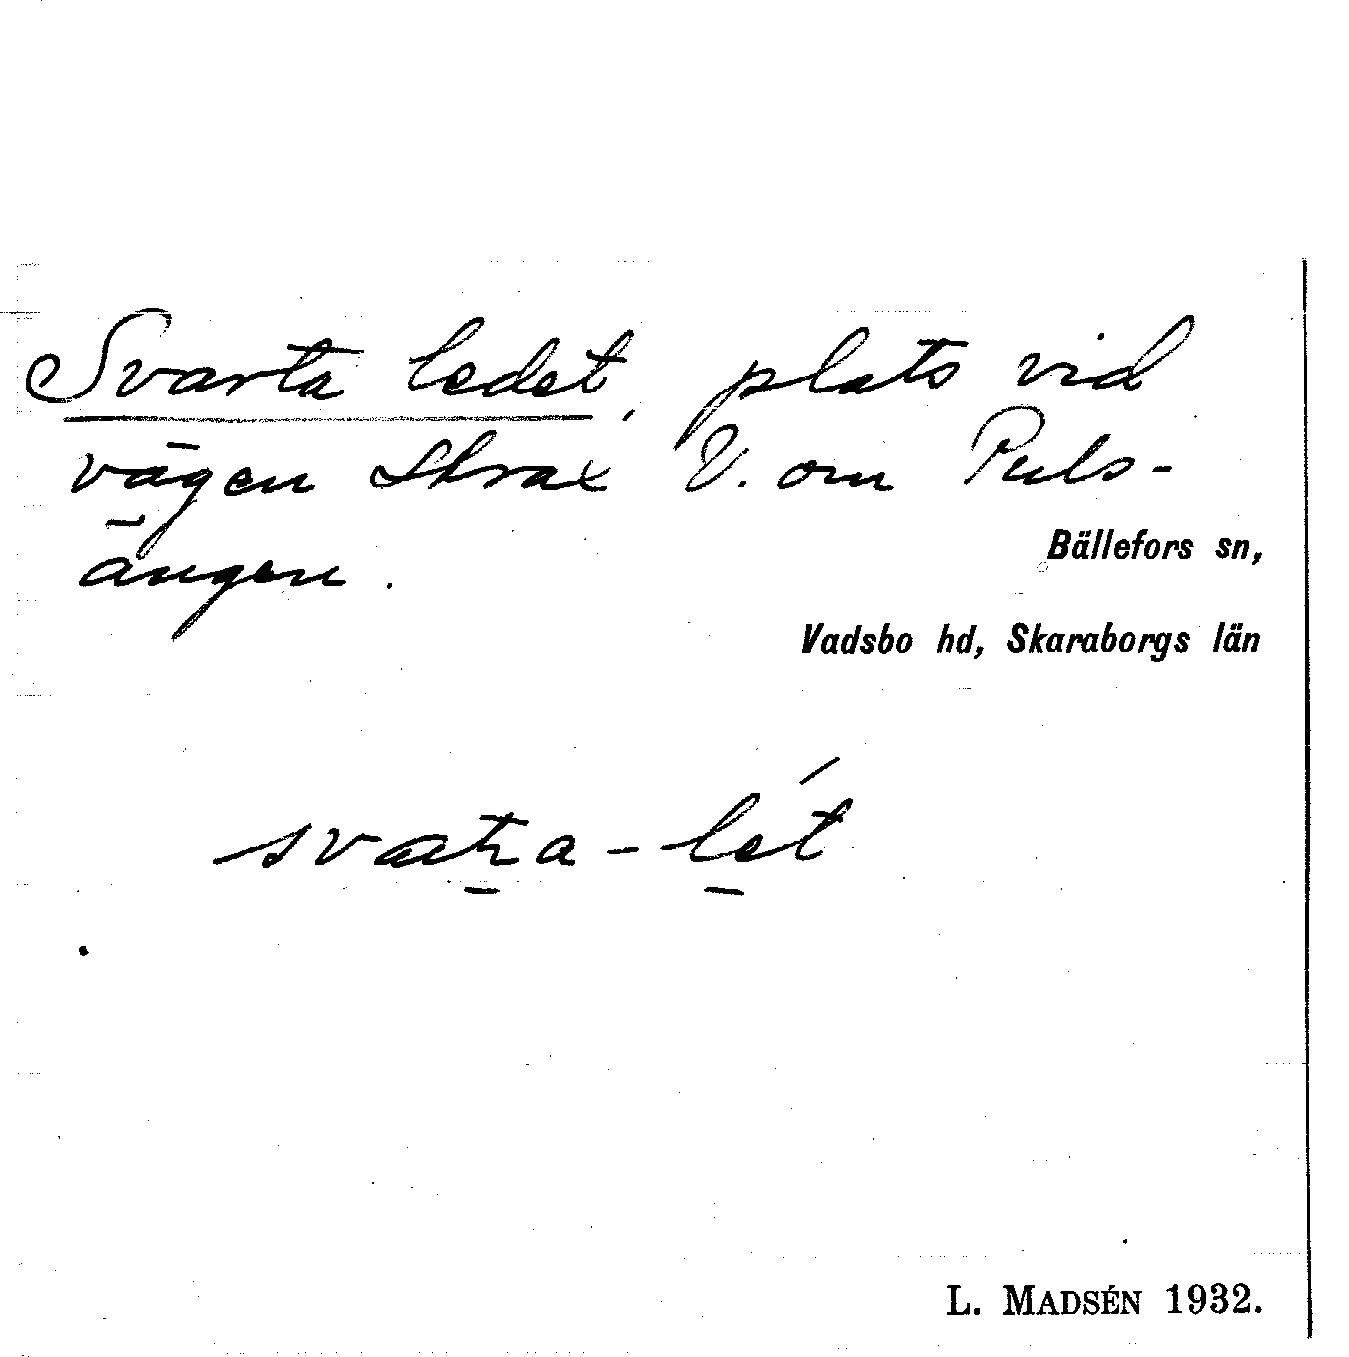 Svarta ledet, plats vid
vägen strax V. om Puls-
ängen.
Bällefors sn,
Vadsbo hd, Skaraborgs län
L. MADSÉN 1932.